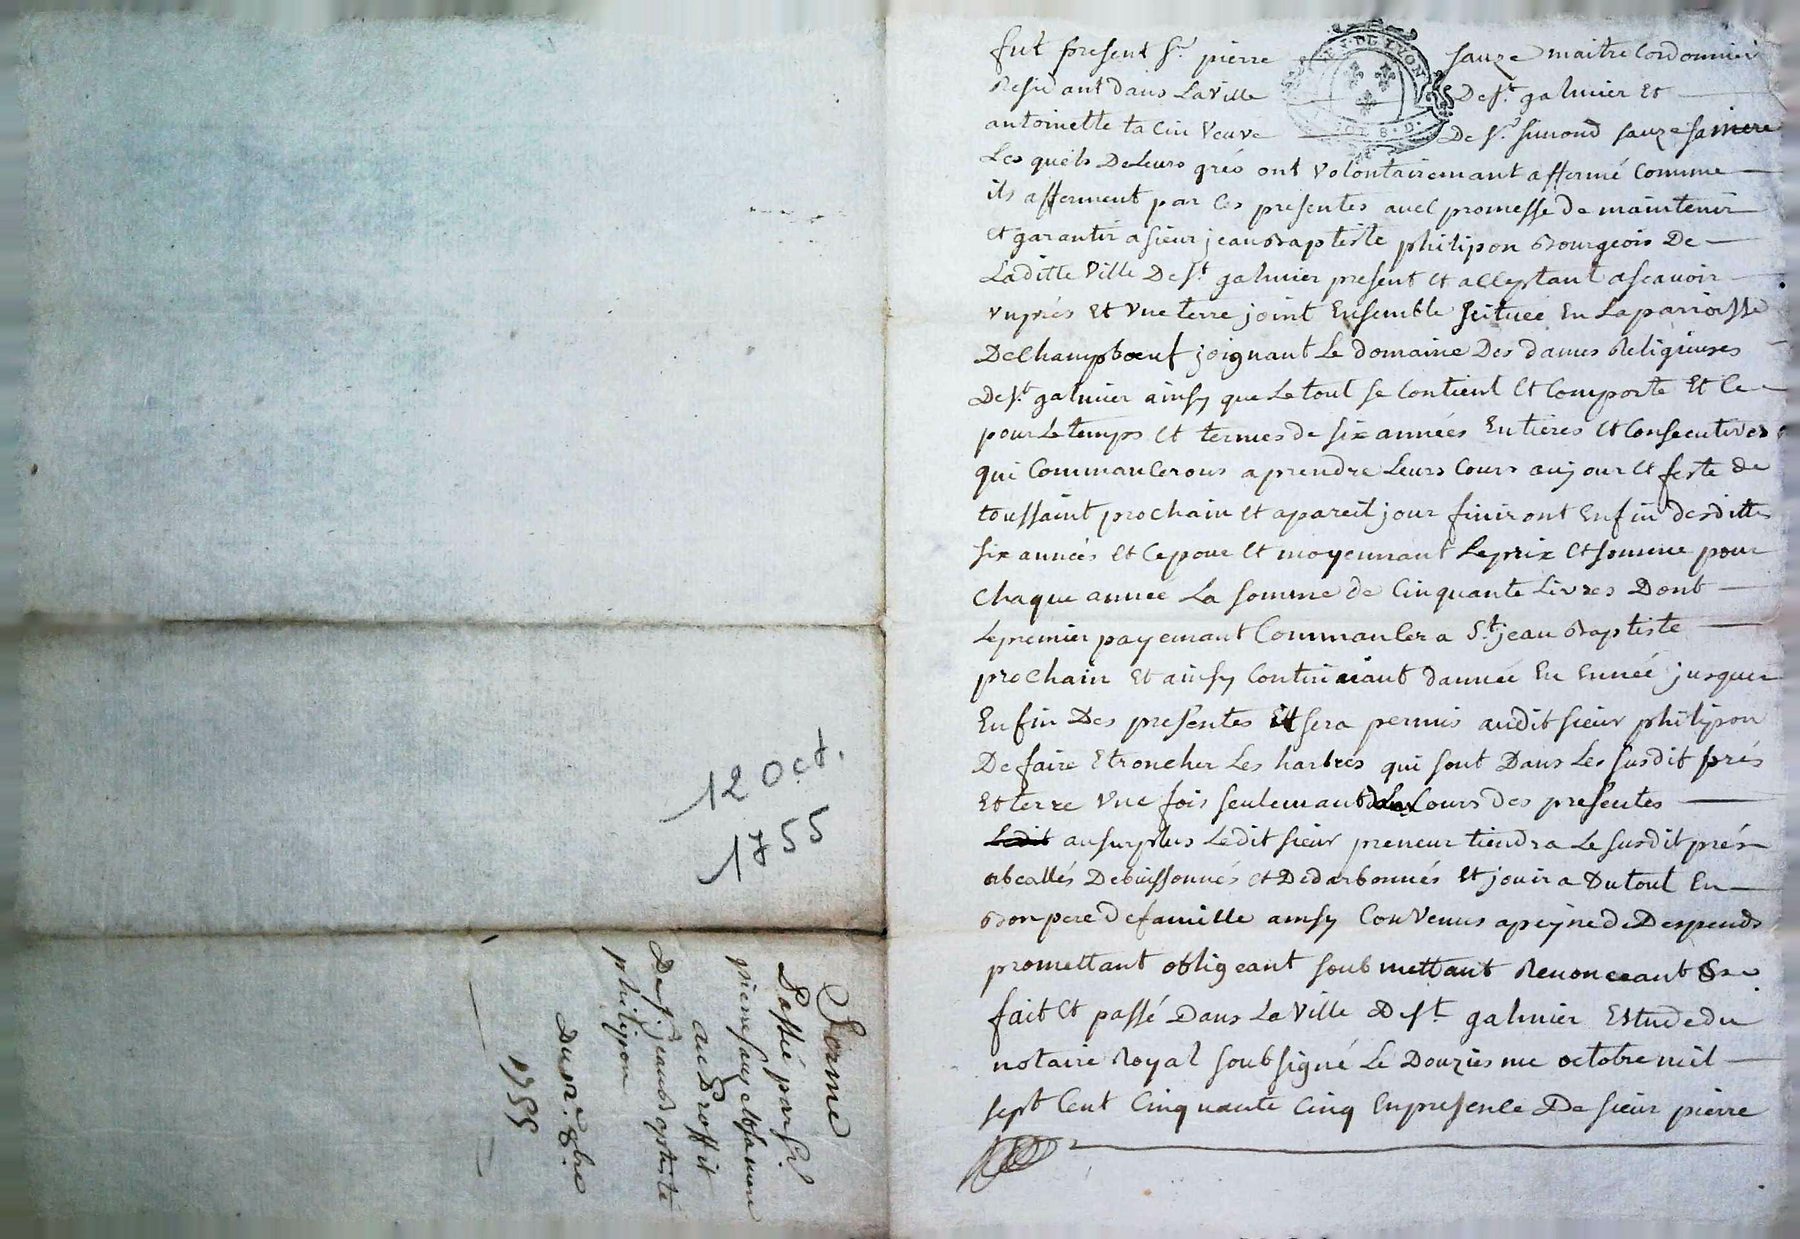 12 oct.
1755
ferme
Passé par Sr.
pierre sauze et sa mere
au proffit
De sr. jean Baptiste
philipon
Du 12e. 8bre
1755
fut present Sr. pierre sauze maitre Cordonnier
Residant dans La ville De st. galmier Et
antoinette tacin veuve De sr. simond sauze sa mere
Lesquels De Leurs grés ont volontairemant affermé Comme
ils afferment par Ces presentes avec promesse de maintenir
Et garantir a sieur jean Baptiste philipon Bourgeois De
Laditte ville De st. galmier present Et acceptant a scavoir
un prés Et une terre joint Ensemble scituée En La parroisse
De Champbœuf joignant Le domaine Des dames Religieuses
De st. galmier ainsy que Le tout se Contient Et Comporte Et Ce
pour Le temps Et termes de six années Entieres Et Consecutives
qui Commancerons a prendre Leurs Cours au jour Et feste de
toussaint prochain Et a pareil jour finiront En fin desdittes
six années Et Ce pour Et moyennant Le prix Et somme pour
Chaque annee La somme de Cinquante Livres Dont
Le premier payemant Commancera St. jean Baptiste
prochain Et ainsy Continuant dannée En Ennée jusques
En fin Des presentes Il sera permis audit sieur philipon
De faire Etroncher Les harbres qui sont Dans Les susdit prés
Et terre une fois seulemant Cours des presentes
Ledit au surplus Ledit sieur preneur tiendra Le susdit prés
Debuissonnés Et Dedarbonnés Et jouira Du tout En
Bon pere De famille ainsy Convenus a peyne de Despends
promettant obligeant soubmettant Renonceant &a.
fait Et passé Dans La ville De st. galmier Estude du
notaire Royal soubsigné Le Douziesme octobre mil
sept Cent Cinquante Cinq En presence De sieur pierre